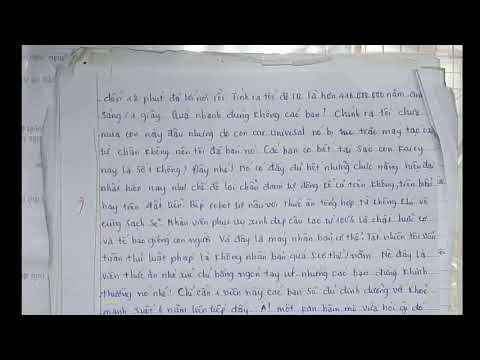 đến 12 phút đã tới nơi rồi. Tính ra tốc độ TB là hơn 416.000.000 năm ánh
sáng / 1 giây. Quá nhanh đúng không các bạn? Chính ra tôi chưa
mua con này đâu nhưng do con car Universal nó bị trục trặc máy tạo
từ chân không nên tôi đã bán nó. Các bạn có biết tại sao con
này là số 1 không? Đây nhé! Nó có đầy đủ hết những chức năng hiện đại
nhất hiện nay như chế độ lái chấm danh tự động kể cả trên không, trên
hay trên đất liền. Bếp robot tự nấu với thức ăn tổng hợp từ không khí vô
cùng sạch sẽ. Nhân viên phục vụ xinh đẹp cấu tạo từ 100% là chất hữu cơ
và tế bào giống con người. Và đây là máy nhân bản cơ thể. Tất nhiên tôi vẫn
tuân thủ luật pháp là không nhân bản quá 510 thể/năm. Nè đây là
viên thức ăn nhé. Xúc chỉ bằng ngón tay út nhưng các bạn đừng khinh
thường nó nhé! Chỉ cần 1 viên này các bạn sẽ đủ dinh dưỡng và khỏe
mạnh suốt 6 năm liên tiếp đấy. A! một bạn hâm mộ vừa hỏi gì đó